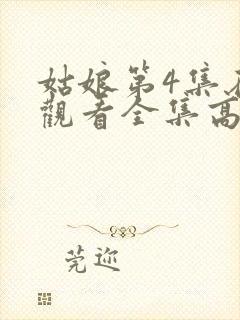 姑娘第4集在
觀看全集高
莞迩